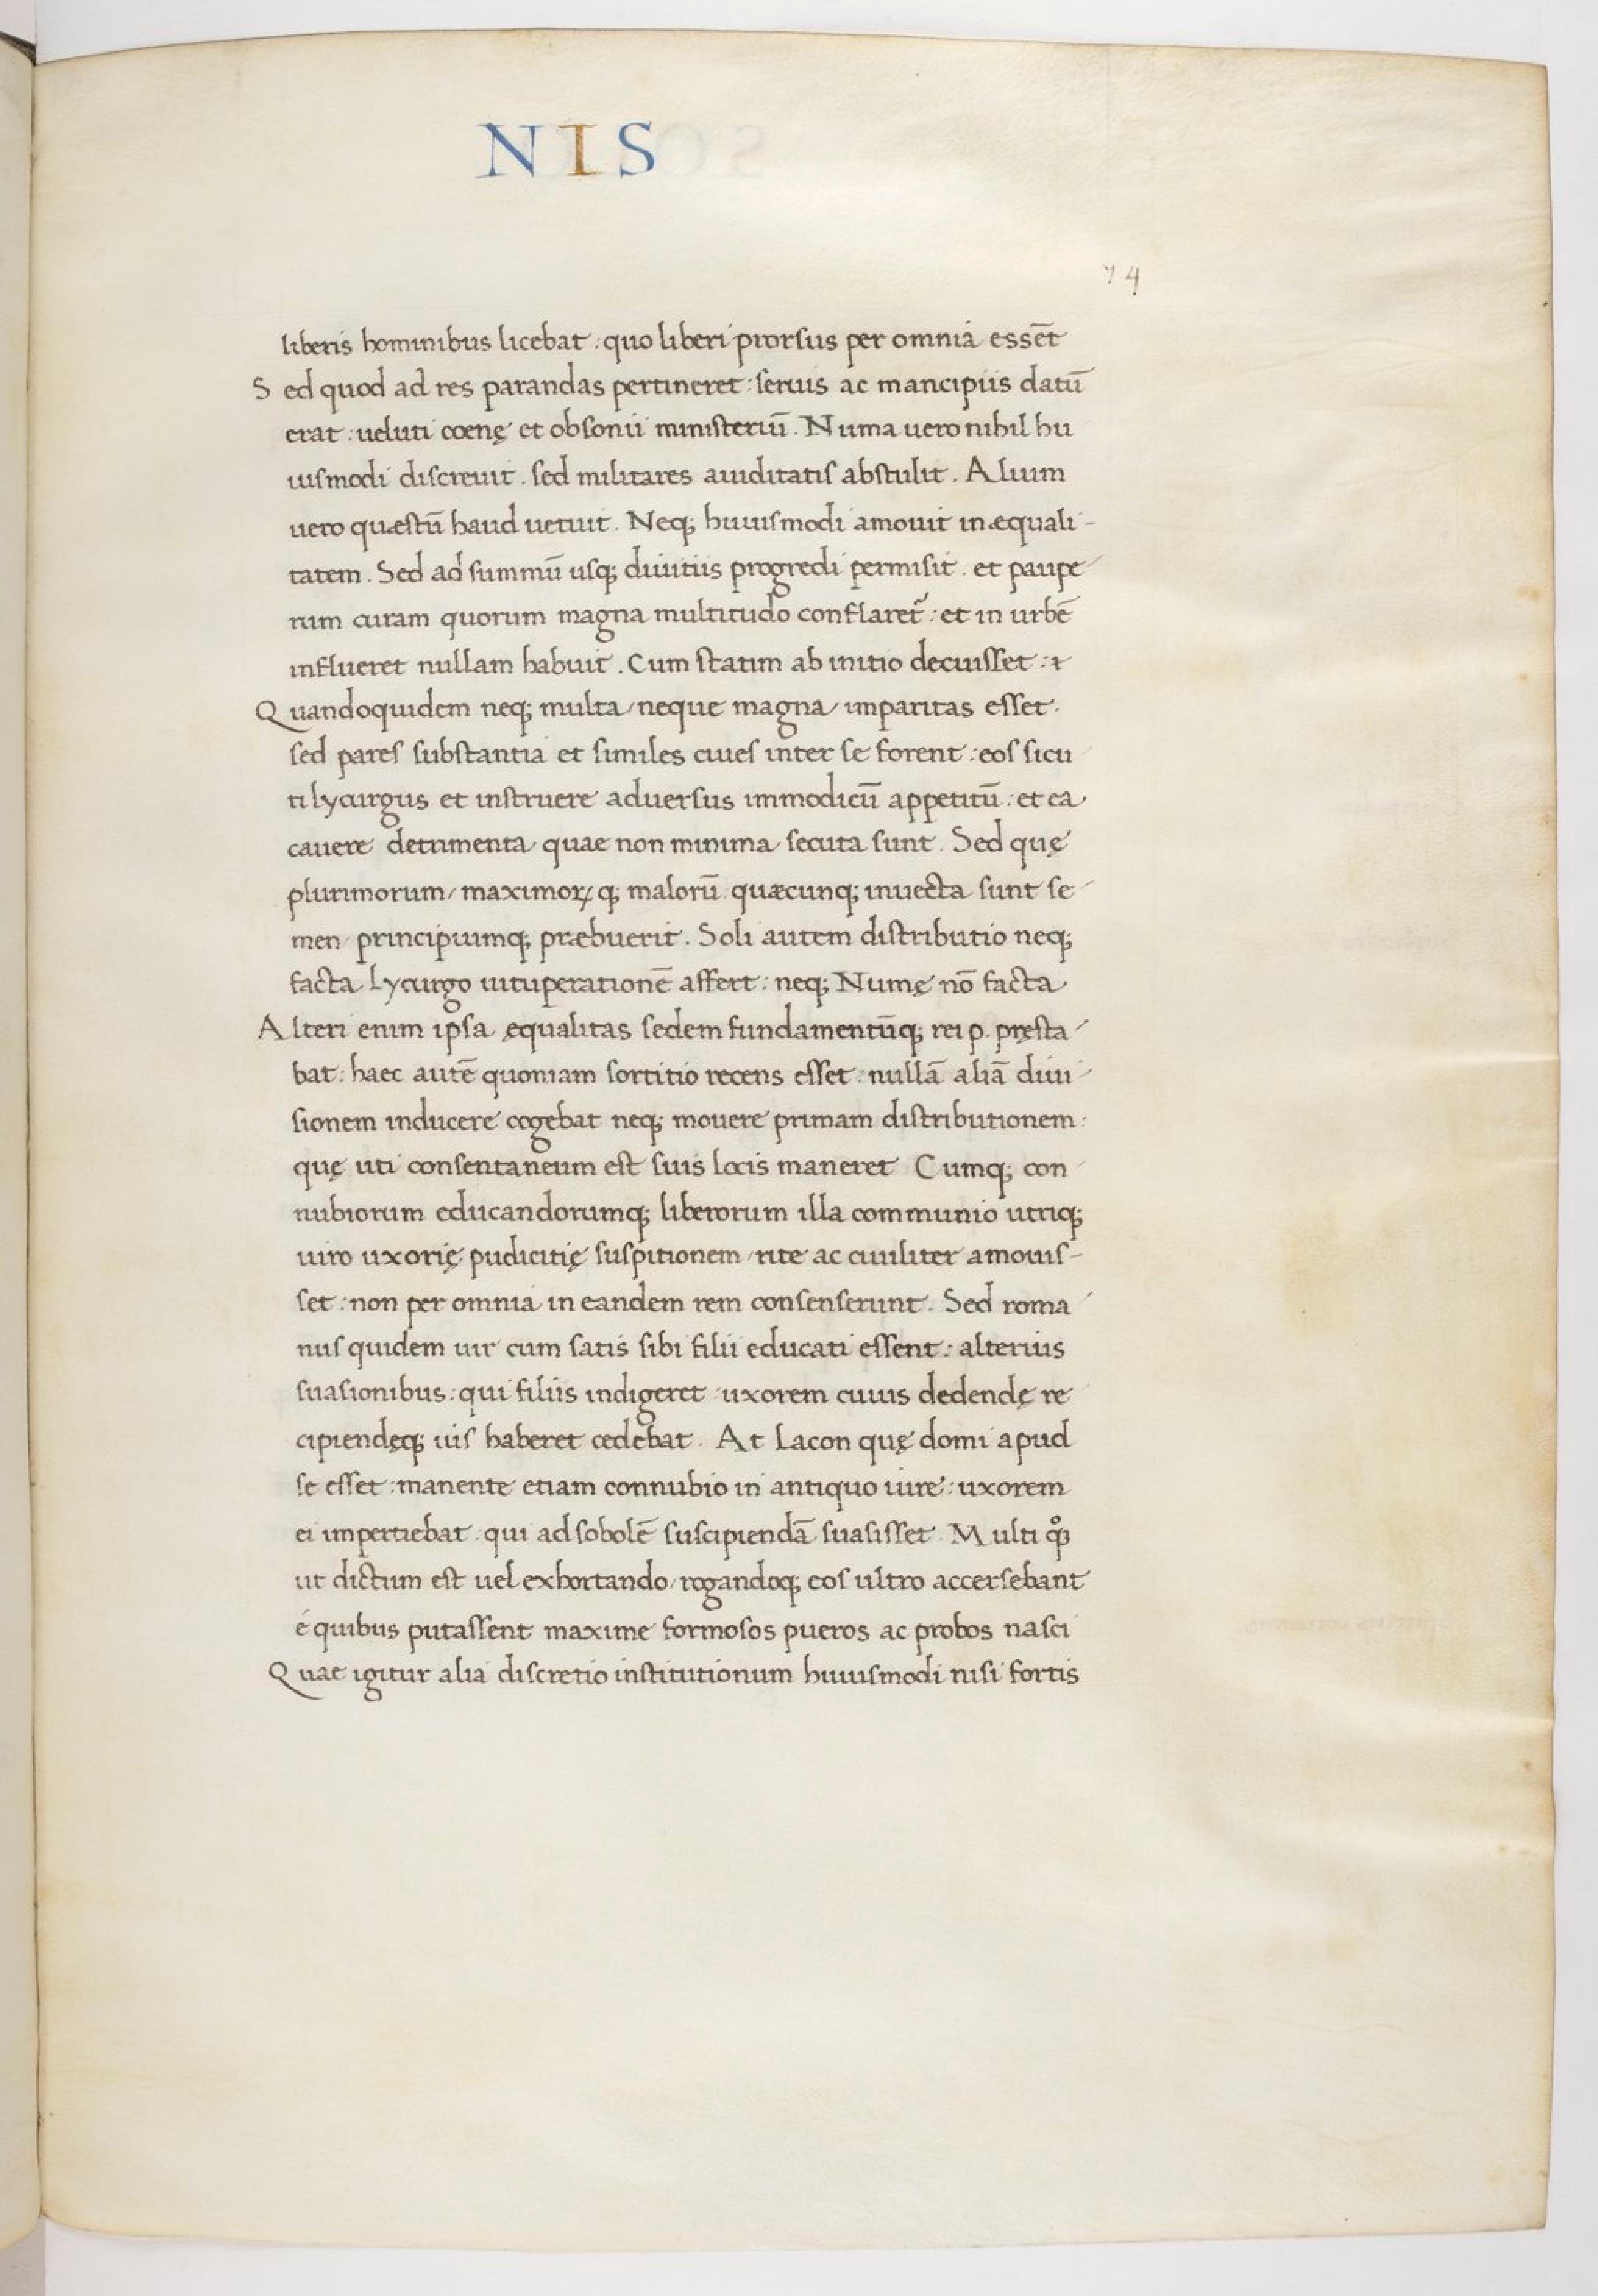 NIS
74
liberis hominibus licebat : quo liberi prorsus per omnia essēt
Sed quod ad res parandas pertineret : seruis ac mancipiis datū
erat : ueluti coenę et obsonii ministeriū . Numa uero nihil hu
iusmodi discreuit . sed militares auiditatis abstulit . Alium
uero quæstū haud uetuit . Neq; huiusmodi amouit inæquali-
tatem . Sed ad summū usq; diuitiis progredi permisit . et paupe
rum curam quorum magna multitudo conflaret᷑ : et in urbē
influeret nullam habuit . Cum statim ab initio decuisset : &
Quandoquidem neq; multa / neque magna imparitas esset .
sed pares substantia et similes ciues inter se forent : eos sicu
ti lycurgus et instruere aduersus immodicū appetitū : et ea
cauere detrimenta quae non minima secuta sunt . Sed quę
plurimorum / maximoꝝ q; malorū quæcunq; inuecta sunt se
men principiumq; præbuerit . Soli autem distributio neq;
facta Lycurgo uituperationē affert : neq; Numę nō facta
Alteri enim ipsa ęqualitas sedem fundamentūq; rei p. pręsta
bat : haec autē quoniam sortitio recens esset : nullā aliā diui
sionem inducere cogebat neq; mouere primam distributionem :
quę uti consentaneum est suis locis maneret Cumq; con
nubiorum educandorumq; liberorum illa communio utriq;
uiro uxorię pudicitię suspitionem / rite ac ciuiliter amouis-
set : non per omnia in eandem rem consenserunt . Sed roma
nus quidem uir cum satis sibi filii educati essent : alterius
suasionibus : qui filiis indigeret : uxorem cuius dedendę re
cipiendęq; uis haberet cedebat . At Lacon quę domi apud
se esset : manente etiam connubio in antiquo iure : uxorem
ei impertiebat qui ad sobolē suscipiendā suasisset Multi qͦꝫ
ut dictum est uel exhortando / rogandoq; eos ultro accersebant
é quibus putassent maxime formosos pueros ac probos nasci
Quae igitur alia discretio institutionum huiusmodi nisi fortis